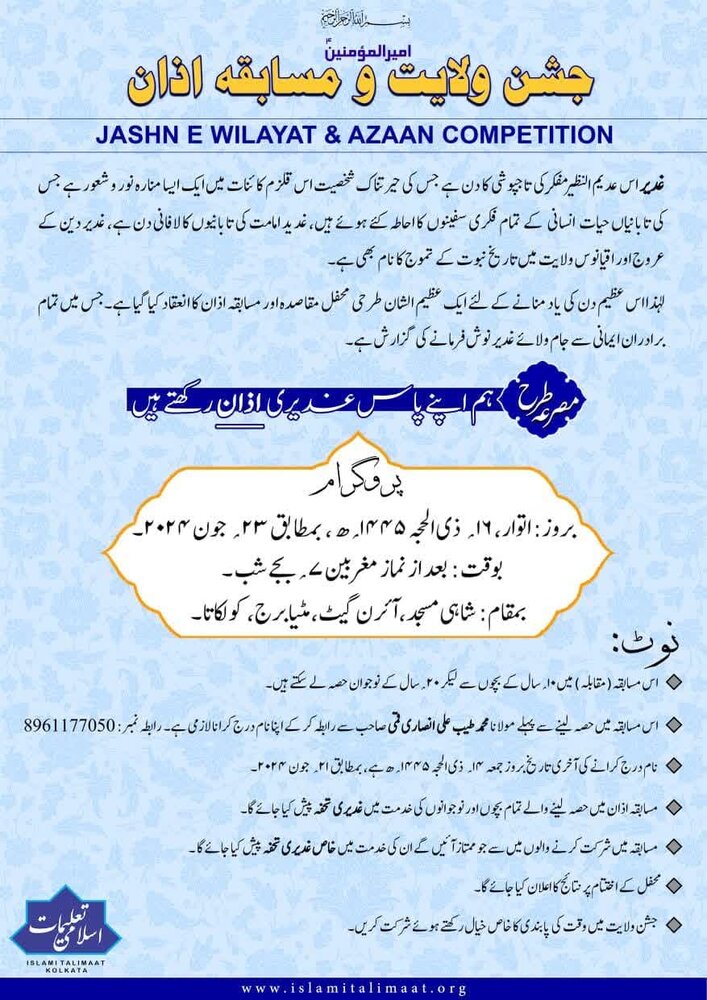 بسم اللہ الرحمن الرحیم
امیرالمؤمنینؑ
جشن ولایت و مسابقہ اذان
JASHN E WILAYAT & AZAAN COMPETITION
غدیر اس عدیم النظیر مفکر کی تاجپوشی کا دن ہے جس کی حیرتناک شخصیت اس قلزم کائنات میں ایک ایسا منارہ نور و شعور ہے جس
کی تابانیاں حیات انسانی کے تمام فکری سفینوں کا احاطہ کئے ہوئے ہیں، غدید امامت کی تابانیوں کا لافانی دن ہے، غدیر دین کے
عروج اور اقیانوس ولایت میں تاریخ نبوت کے تموج کا نام بھی ہے۔
لہٰذا اس عظیم دن کی یاد منانے کے لئے ایک عظیم الشان طرحی محفل مقاصدہ اور مسابقہ اذان کا انعقاد کیا گیا ہے۔ جس میں تمام
برادران ایمانی سے جام ولائے غدیر نوش فرمانے کی گزارش ہے۔
مصرعہ طرح ہم اپنے پاس غدیری اذان رکھتے ہیں
پروگرام
بروز : اتوار، ۱۶؍ ذی الحجہ ۱۴۴۵ھ ، بمطابق ۲۳؍ جون ۲۰۲۴۔
بوقت : بعد از نماز مغربین ۷؍ بجے شب۔
بمقام : شاہی مسجد، آئرن گیٹ، مٹیا برج، کولکاتا۔
نوٹ:
اس مسابقہ (مقابلہ) میں ۱۰؍ سال کے بچوں سے لیکر ۲۰؍ سال کے نوجوان حصہ لے سکتے ہیں۔
اس مسابقہ میں حصہ لینے سے پہلے مولانا محمد طیب علی انصاری قمی صاحب سے رابطہ کر کے اپنا نام درج کرانا لازمی ہے۔ رابطہ نمبر : 8961177050
نام درج کرانے کی آخری تاریخ بروز جمعہ ۱۴؍ ذی الحجہ ۱۴۴۵ھ ہے، بمطابق ۲۱؍ جون ۲۰۲۴۔
مسابقہ اذان میں حصہ لینے والے تمام بچوں اور نوجوانوں کی خدمت میں غدیری تحفہ پیش کیا جائے گا۔
مسابقہ میں شرکت کرنے والوں میں سے جو ممتاز آئیں گے ان کی خدمت میں خاص غدیری تحفہ پیش کیا جائے گا۔
محفل کے اختتام پر نتائج کا اعلان کیا جائے گا۔
جشن ولایت میں وقت کی پابندی کا خاص خیال رکھتے ہوئے شرکت کریں۔
اسلامی تعلیمات
ISLAMI TALIMAAT
KOLKATA
www.islamitalimaat.org